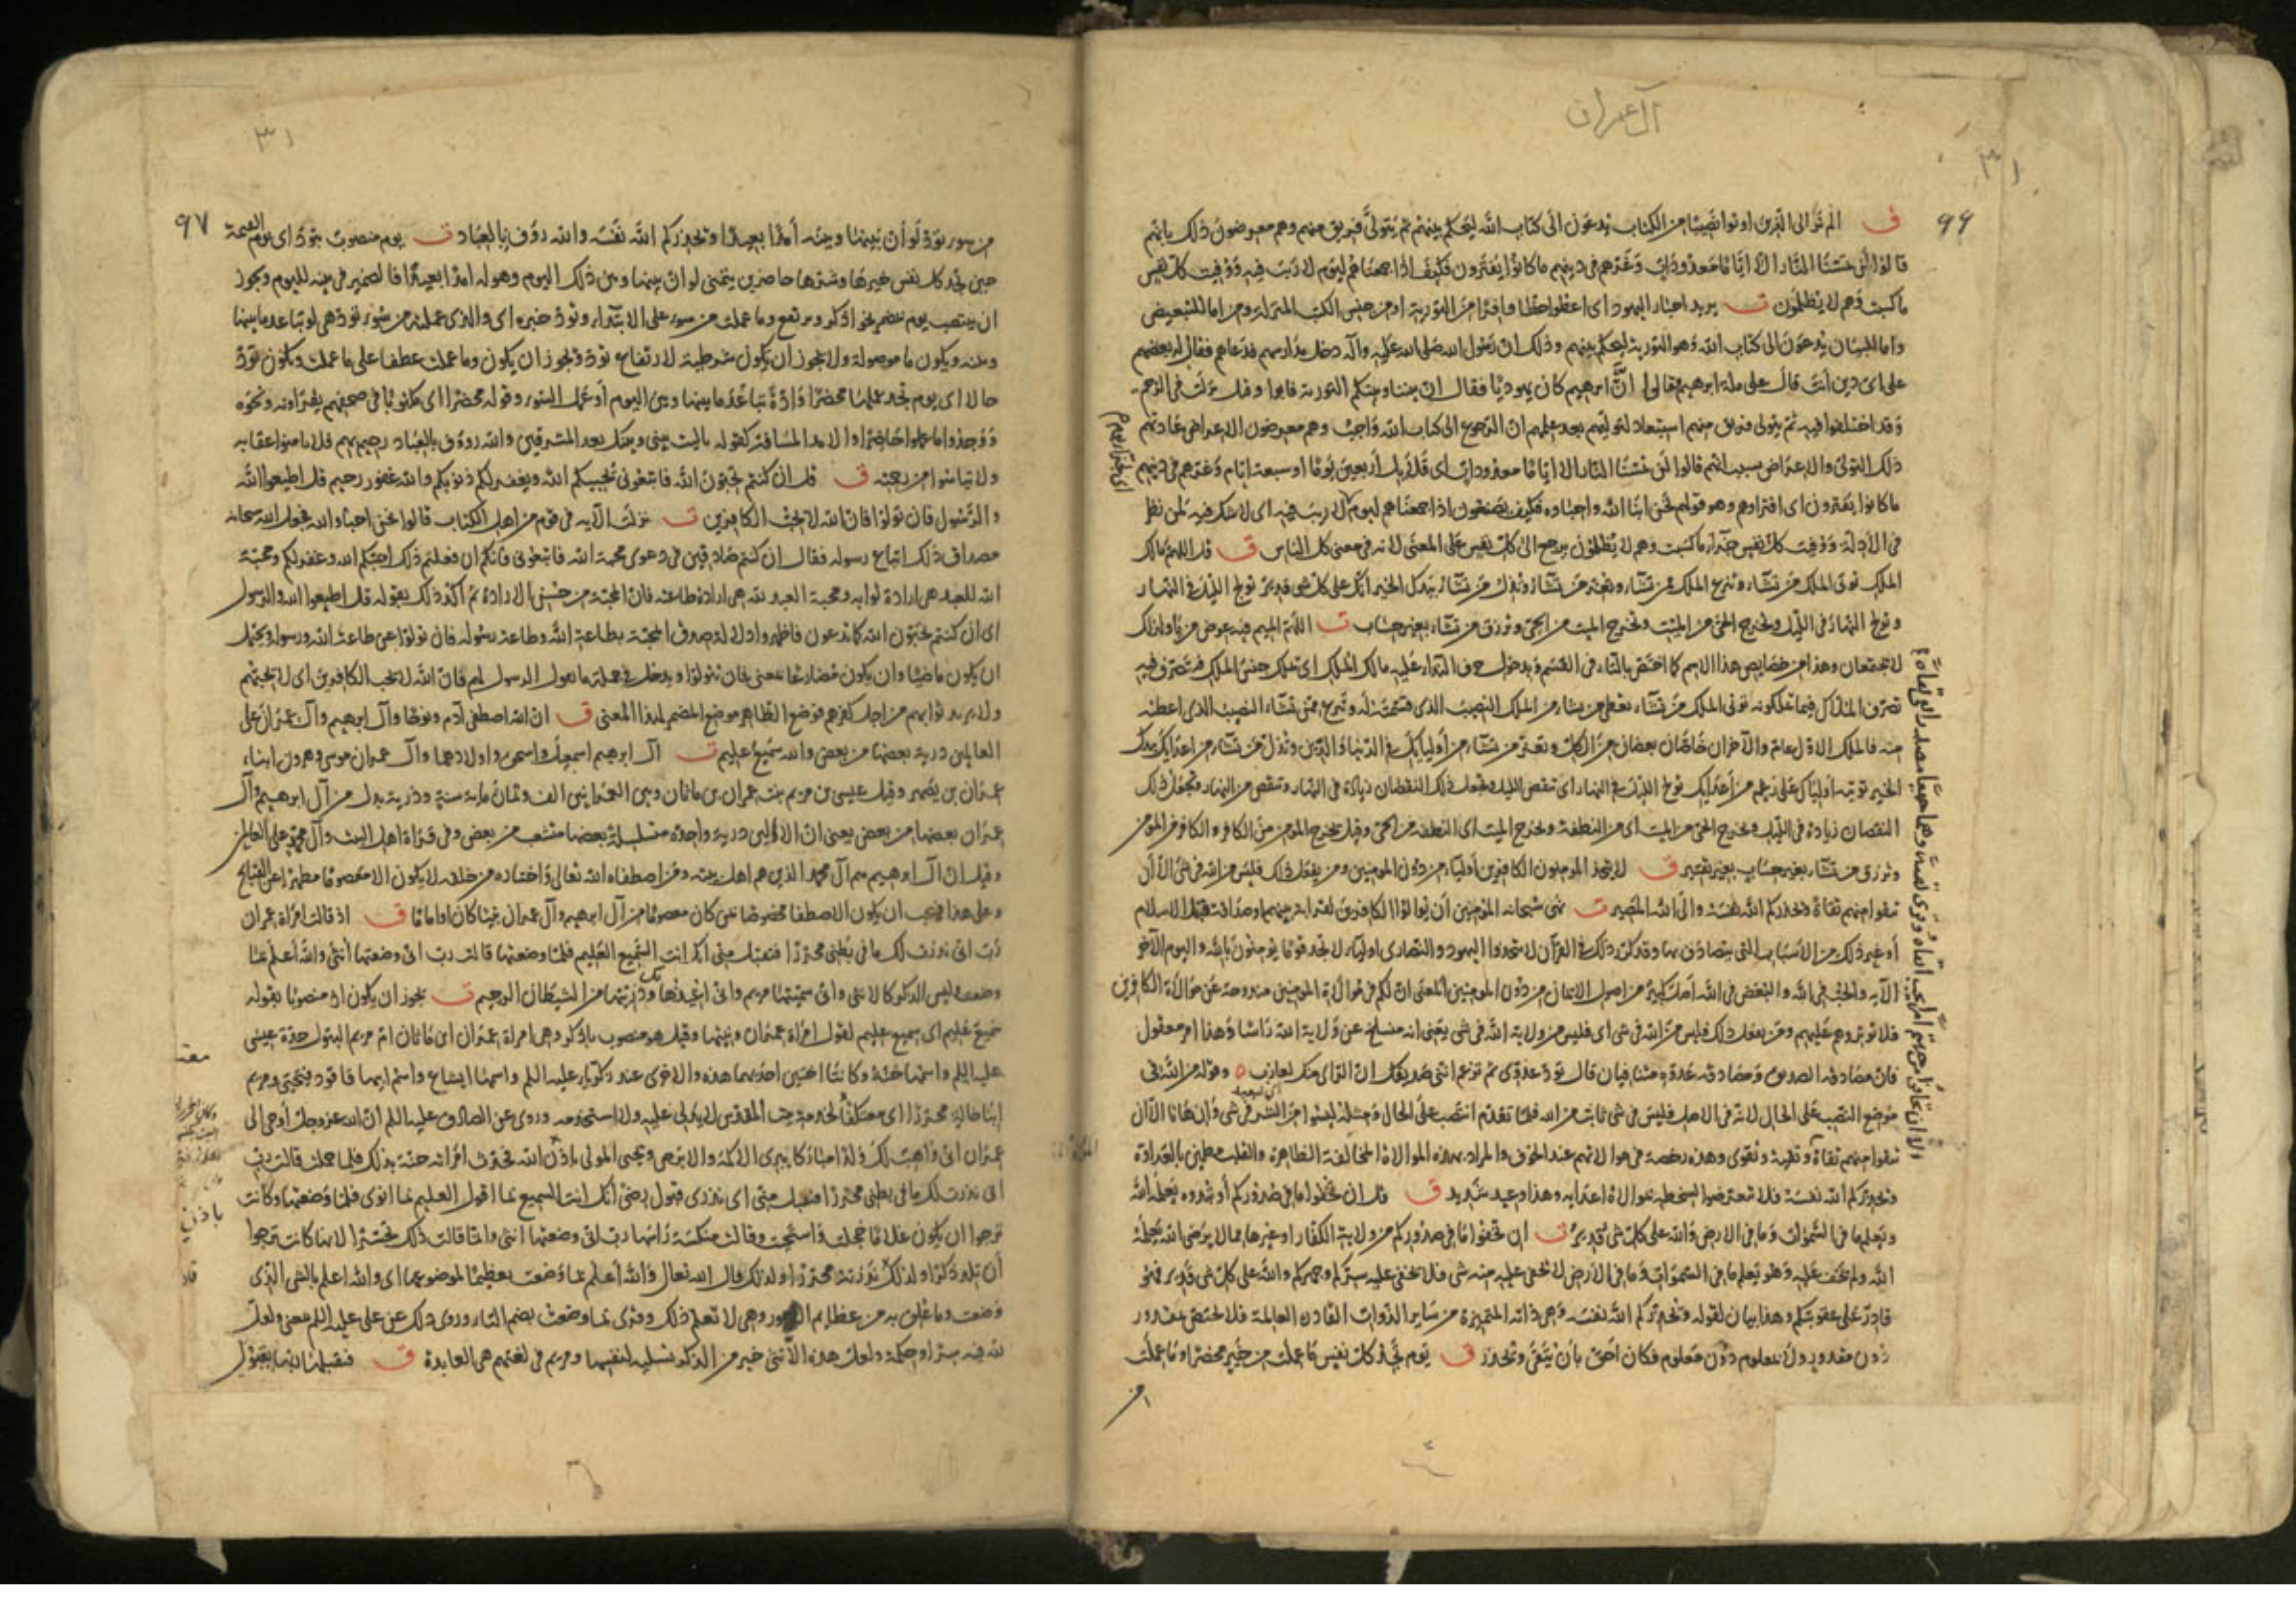 آل عمران
٣١
٩٦
ق الم تر الى الذين اوتوا نصيبا من الكتاب يدعون الى كتاب الله ليحكم بينهم ثم يتولى فريق منهم وهم معرضون ذلك بانهم
قالوا لن تمسنا النار الا اياما معدودات وغرهم في دينهم ما كانوا يفترون فكيف اذا جمعناهم ليوم لا ريب فيه ووفيت كل نفس
ما كسبت وهم لا يظلمون ت يريد احبار اليهود اى اعطوا حظا وافرا من التورية او من جنس الكتب المنزلة ومن اما للتبعيض
واما للبيان يدعون الى كتاب الله وهو التورية ليحكم بينهم وذلك ان رسول الله صلى الله عليه وآله دخل مدارسهم فدعاهم فقال له بعضهم
على اى دين انت قال على ملة ابرهيم قالوا ان ابرهيم كان يهوديا فقال ان بيننا وبينكم التورية فابوا وقيل نزلت في الرجم
وقد اختلفوا فيه ثم يتولى فريق منهم استبعاد لتوليهم بعد علمهم ان الرجوع الى كتاب الله واجب وهم معرضون الاعراض عادتهم
ذلك التولى والاعراض بسبب انهم قالوا لن تمسنا النار الا اياما معدودات اى قلائل اربعين يوما او سبعة ايام وغرهم في دينهم
ما كانوا يفترون اى افتراؤهم وهو قولهم نحن ابنا الله واحباؤه فكيف يصنعون اذا جمعناهم ليوم لا ريب فيه اى لا شك فيه لمن نظر
في الادلة ووفيت كل نفس جزاء ما كسبت وهم لا يظلمون يرجع الى كل نفس على المعنى لانه في معنى كل الناس ق قل اللهم مالك
الملك تؤتى الملك من تشاء وتنزع الملك ممن تشاء وتعز من تشاء وتذل من تشاء بيدك الخير انك على كل شى قدير تولج الليل في النهار
وتولج النهار في الليل وتخرج الحى من الميت وتخرج الميت من الحى وترزق من تشاء بغير حساب ت اللهم الميم فيه عوض من يا ولذلك
لا تجتمعان وهذا من خصايص هذا الاسم كما اختص بالتاء في القسم وبدخول حرف النداء عليه مالك الملك اى تملك جنس الملك فتتصرف فيه
تصرف الملاك فيما تملكونه تؤتى الملك من تشاء تعطى من تشاء من الملك النصيب الذى قسمته له وتنزع ممن تشاء النصيب الذى اعطيته
منه فالملك الاول عام والآخران خاصان بعضان من الكل وتعز من تشاء من اوليائك في الدنيا والدين وتذل من تشاء من اعدائك بيدك
الخير تؤتيه اولياك على رغم من اعدائك تولج الليل في النهار اى تنقص الليل وتجعل ذلك النقصان زيادة في النهار وتنقص من النهار وتجعل ذلك
النقصان زيادة في الليل وتخرج الحى من الميت اى من النطفة وتخرج الميت اى النطفة من الحى وقيل تخرج المؤمن من الكافر والكافر من المؤمن
وترزق من تشاء بغير حساب بغير تقتير ق لا يتخذ المؤمنون الكافرين اولياء من دون المؤمنين ومن يفعل ذلك فليس من الله في شى الا ان
تتقوا منهم تقاة ويحذركم الله نفسه والى الله المصير ت نهى سبحانه المؤمنين ان يوالوا الكافرين لقرابة بينهم او صداقة قبل الاسلام
او غير ذلك من الاسباب التى يتصادق بها وقد كرر ذلك في القرآن لا تتخذوا اليهود والنصارى اولياء لا تجد قوما يؤمنون بالله واليوم الآخر
الآية والحب في الله والبغض في الله اصل كبير من اصول الايمان من دون المؤمنين المعنى ان لكم في موالاة المؤمنين مندوحة عن موالاة الكافرين
فلا تؤثروهم عليهم ومن يفعل ذلك فليس من الله في شى اى فليس من ولاية الله في شى يعنى انه منسلخ عن ولاية الله راسا وهذا امر معقول
فان مصادقة الصديق ومصادقة عدوه متنافيان قال تود عدوى ثم تزعم اننى صديقك ان الراى منك لعازب وقوله من الله في
موضع النصب على الحال لانه في الاصل فليس في شى ثابت من الله فلما تقدم انتصب على الحال
تتقوا منهم تقاة وتقية وتقوى وهذه رخصة في موالاتهم عند الخوف والمراد بهذه الموالاة المخالفة الظاهرة والقلب مطمئن بالعداوة
ويحذركم الله نفسه فلا تتعرضوا لسخطه بموالاة اعدايه وهذا وعيد شديد ق قل ان تخفوا ما في صدوركم او تبدوه يعلمه الله
ويعلم ما في السموات وما في الارض والله على كل شى قدير ت ان تخفوا ما في صدوركم من ولاية الكفار او غيرها مما لا يرضى الله يعلمه
الله ولم يخف عليه وهو يعلم ما في السموات وما في الارض لا يخفى عليه منه شى فلا يخفى عليه سركم وجهركم والله على كل شى قدير فهو
قادر على عقوبتكم وهذا بيان لقوله ويحذركم الله نفسه وهى ذاته المتميزة من ساير الذوات القادرة العالمة فلا تختص بمقدور
دون مقدور ولا بمعلوم دون معلوم فكان احق بان يتقى ويحذر ق يوم تجد كل نفس ما عملت من خير محضرا وما عملت
من
٣١
٩٧
من سوء تود لو ان بينها وبينه امدا بعيدا ويحذركم الله نفسه والله رؤف بالعباد ت يوم منصوب بتود اى يوم القيمة
حين تجد كل نفس خيرها وشرها حاضرين يتمنى لو ان بينها وبين ذلك اليوم وهوله امدا بعيدا فالضمير في بينه لليوم ويجوز
ان ينتصب يوم بمضمر نحو اذكر ويرتفع وما عملت من سوء على الابتداء وتود خبره اى والذى عملته من سوء تود هى لو تباعد ما بينها
وبينه ويكون ما موصولة ولا يجوز ان يكون شرطية لارتفاع تود ويجوز ان يكون وما عملت عطفا على ما عملت ويكون تود
حالا اى يوم تجد عملها محضرا وادة تباعد ما بينها وبين اليوم او عمل السوء وقوله محضرا اى مكتوبا في صحفهم يقراونه ونحوه
ووجدوا ما عملوا حاضرا والامد المسافة كقوله يا ليت بينى وبينك بعد المشرقين والله رؤف بالعباد رحيم بهم فلا يامنوا عقابه
ولا تياسوا من رحمته ق قل ان كنتم تحبون الله فاتبعونى يحببكم الله ويغفر لكم ذنوبكم والله غفور رحيم قل اطيعوا الله
والرسول فان تولوا فان الله لا يحب الكافرين ت نزلت الآية في قوم من اهل الكتاب قالوا نحن احباء الله فجعل الله سبحانه
مصداق ذلك اتباع رسوله فقال ان كنتم صادقين في دعوى محبة الله فاتبعونى فانكم ان فعلتم ذلك احبكم الله وغفر لكم ومحبة
الله للعبد هى ارادة ثوابه ومحبة العبد لله هى ارادة طاعته فان المحبة من جنس الارادة ثم اكد ذلك بقوله قل اطيعوا الله والرسول
اى ان كنتم تحبون الله كما تدعون فاظهروا دلالة صدق المحبة بطاعة الله وطاعة رسوله فان تولوا عن طاعة الله ورسوله ويحتمل
ان يكون ماضيا وان يكون مضارعا بمعنى فان تتولوا ويدخل في جملة ما يقول الرسول لهم فان الله لا يحب الكافرين اى لا يحبهم
ولا يريد ثوابهم من اجل كفرهم فوضع الظاهر موضع المضمر لهذا المعنى ق ان الله اصطفى آدم ونوحا وآل ابرهيم وآل عمران على
العالمين ذرية بعضها من بعض والله سميع عليم ت آل ابرهيم اسمعيل واسحق واولادهما وآل عمران موسى وهرون ابناء
عمران بن يصهر وقيل عيسى بن مريم بنت عمران بن ماثان وبين العمرانين الف وثمان مائة سنة وذرية بدل من آل ابرهيم وآل
عمران بعضها من بعض يعنى ان الآلين ذرية واحدة متسلسلة بعضها متشعب من بعض وفي قراءة اهل البيت وآل محمد على العالمين
وقيل ان آل ابرهيم هم آل محمد الذين هم اهل بيته ومن اصطفاه الله تعالى واختاره من خلقه لا يكون الا معصوما مطهرا عن القبائح
وعلى هذا فيجب ان يكون الاصطفا مخصوصا بمن كان معصوما من آل ابرهيم وآل عمران نبيا كان او اماما ق اذ قالت امراة عمران
رب انى نذرت لك ما في بطنى محررا فتقبل منى انك انت السميع العليم فلما وضعتها قالت رب انى وضعتها انثى والله اعلم بما
وضعت وليس الذكر كالانثى وانى سميتها مريم وانى اعيذها بك وذريتها من الشيطان الرجيم ت يجوز ان يكون اذ منصوبا بقوله
سميع عليم اى سميع عليم لقول امراة عمران ونيتها وقيل هو منصوب باذكر وهى امراة عمران ابن ماثان ام مريم البتول جدة عيسى
عليه السلم واسمها حنة وكانتا اختين احديهما هذه والاخرى عند زكريا عليه السلم واسمها ايشاع واسم ابيها فاقود فيحيى ومريم
ابنا خالة محررا اى معتكفا لخدمة بيت المقدس لا يد لى عليه ولا استخدمه وروى عن الصادق عليه السلم ان الله عز وجل اوحى الى
عمران انى واهب لك ولدا مباركا يبرى الاكمه والابرص ويحيى الموتى باذن الله فحدث امراته حنة بذلك فلما حملت قالت رب
انى نذرت لك ما في بطنى محررا فتقبل منى اى نذرى قبول رضى انك انت السميع بما اقول العليم بما انوى فلما وضعتها وكانت
ترجوا ان يكون غلاما خجلت واستحيت وقالت منكسة راسها رب انى وضعتها انثى وانما قالت ذلك تحسرا لانها كانت ترجوا
ان تلد ذكرا ولذلك نذرته محررا ولذلك قال الله تعالى والله اعلم بما وضعت تعظيما لموضوعها اى والله اعلم بالشى الذى
وضعت وما علق به من عظايم الامور وهى لا تعلم ذلك وقرى بما وضعت بضم التاء وروى ذلك عن على عليه السلم بمعنى ولعل
لله فيه سرا وحكمة ولعل هذه الانثى خير من الذكر تسلية لنفسها ومريم في لغتهم هى العابدة ق فتقبلها ربها بقبول